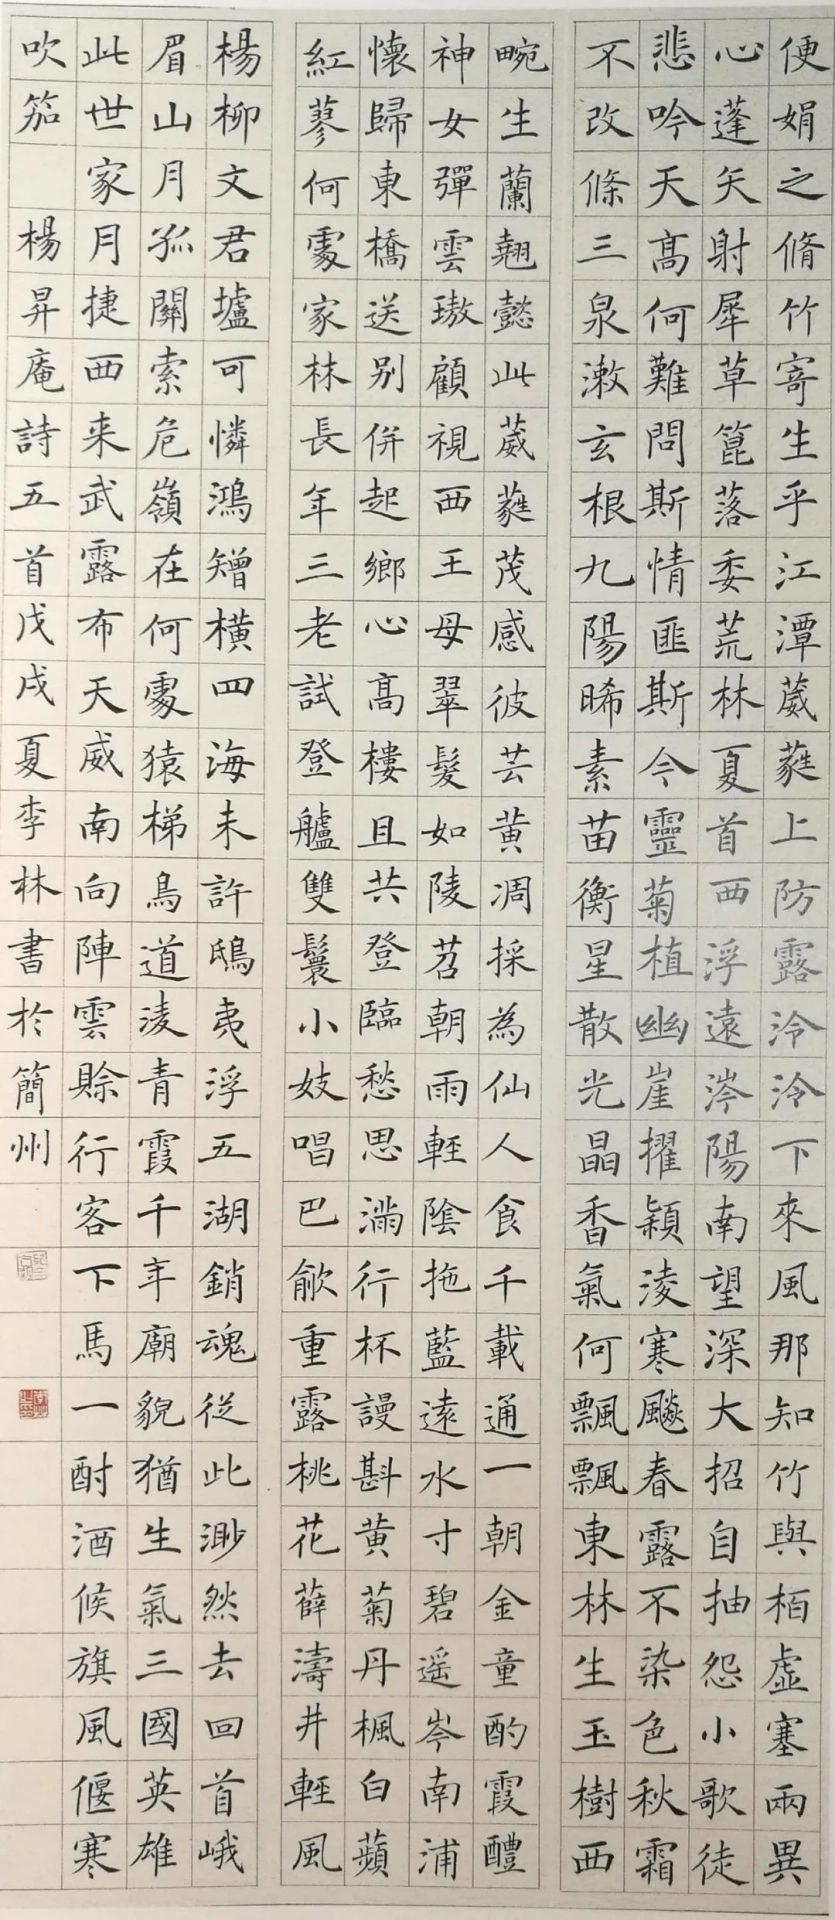 便娟之脩竹寄生乎江潭葳蕤上防露泠泠下來風那知竹與栢虛塞兩異
心蓬矢射犀草篦落委荒林夏首西浮遠涔陽南望深大招自抽怨小歌徒
悲吟天高何難問斯情匪斯今靈菊植幽崖擢穎淩寒飈春露不染色秋霜
不改條三泉漱玄根九陽晞素苗衡星散光晶香氣何飄飄東林生玉樹西
畹生蘭翹懿此葳蕤茂感彼芸黄凋採為仙人食千載通一朝金童酌霞醴
神女彈雲璈顧視西王母翠髮如陵苕朝雨輕陰拖藍遠水寸碧遥岑南浦
懷歸東橋送别併起鄉心高樓且共登臨愁思滿行杯謾斟黄菊丹楓白蘋
紅蓼何處家林長年三老試登艫雙鬟小妓唱巴歈重露桃花薛濤井輕風
楊柳文君壚可憐鴻矰橫四海未許鴟夷浮五湖銷魂從此渺然去回首峨
眉山月孤關索危嶺在何處猿梯鳥道淩青霞千年廟貌猶生氣三國英雄
此世家月捷西来武露布天威南向陣雲賒行客下馬一酎酒候旗風偃寒
吹笳 楊昇庵詩五首戊戌夏李林書於簡州